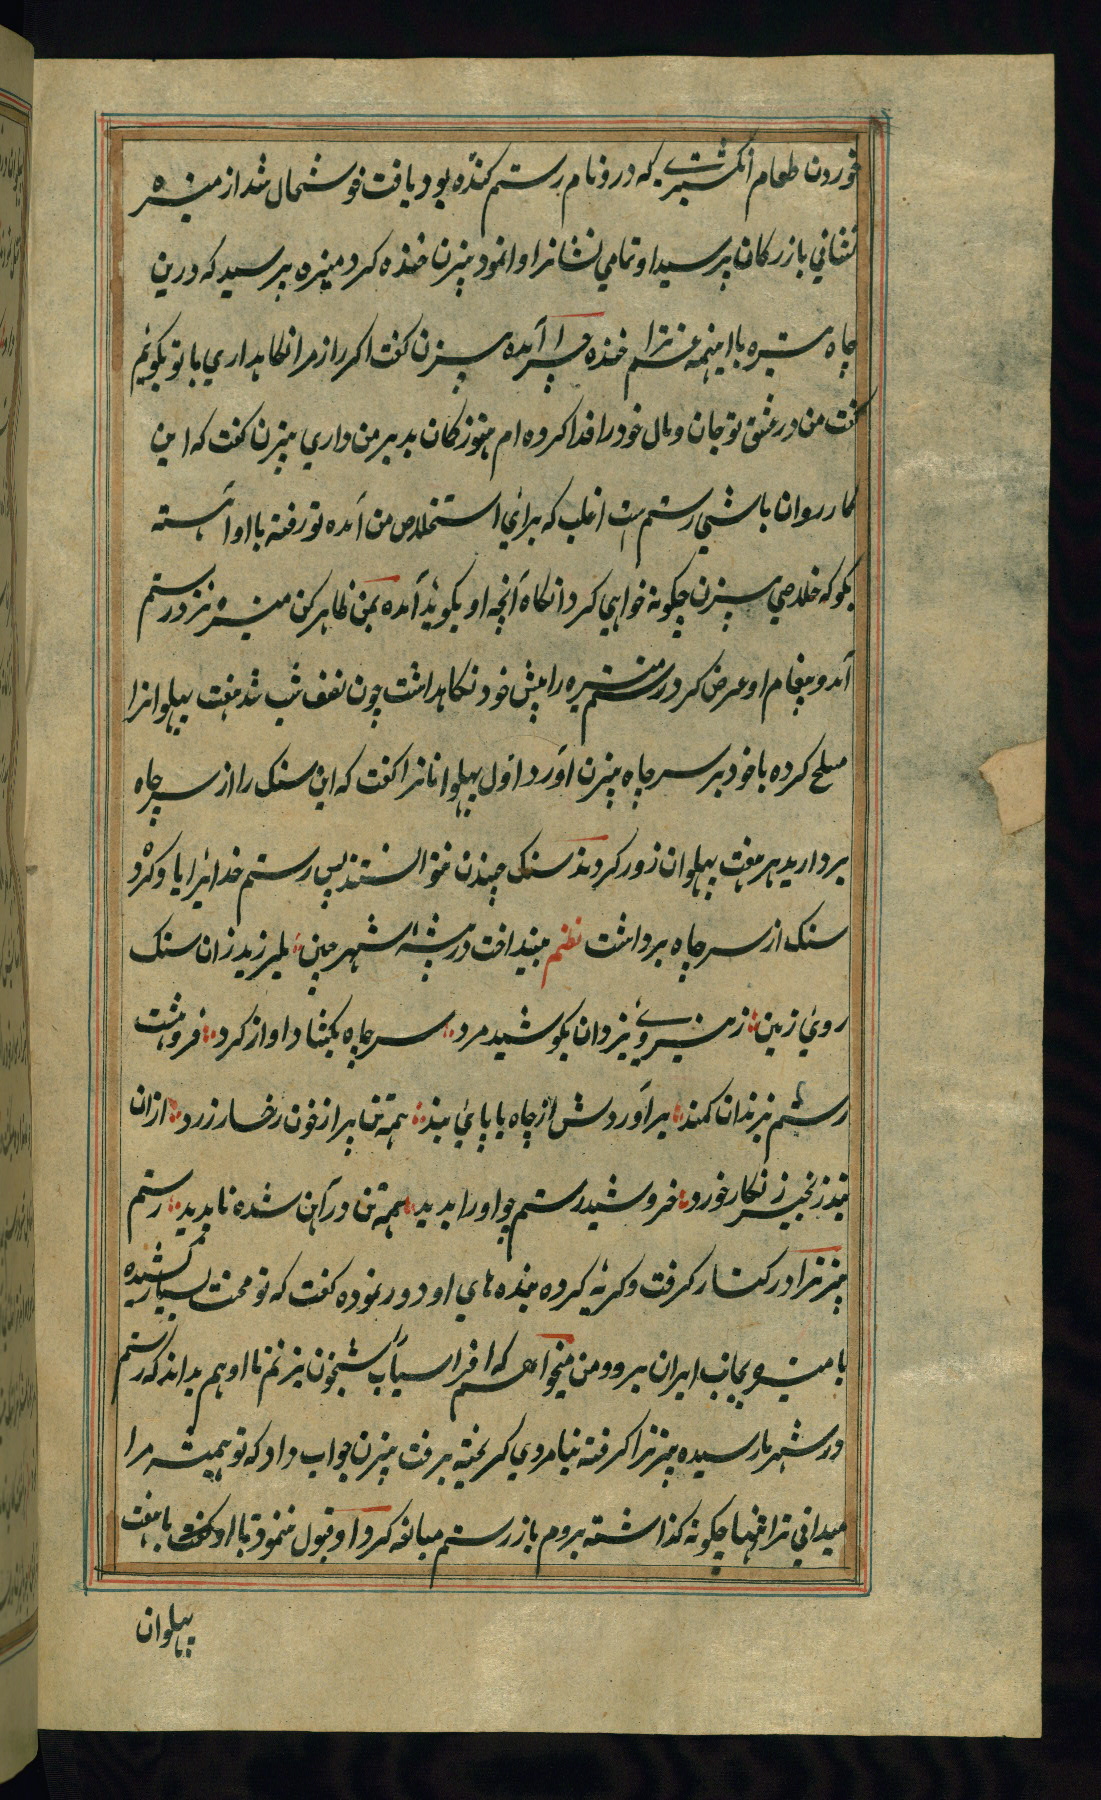 خوردن طعام انگشتری که درو نام رستم کنده بود یافت خوشحال شد از منیژه
نشانی بازرگان پرسید او تمامی نشانرا وانمود بیژن خنده کرد منیژه پرسید که درین
چاه تیره با اینهمه غم ترا خنده چرا آمده بیژن گفت اگر راز مرا نگاهداری با تو بگویم
گفت من در عشق تو جان و مال خود را فدا کرده ام هنوز گمان بد بر من داری بیژن گفت که این
کاروان باشی رستم ست اغلب که برای استخلاص من آمده تو رفته با او آهسته
بگو که خلاصی بیژن چگونه خواهی کرد آنگاه آنچه او بگوید آمده بمن ظاهر کن منیژه نزد رستم
آمد و پیغام او عرض کرد رستم منیژه را پیش خود نگاهداشت چون نصف شب شد هفت پهلوانرا
مسلح کرده با خود بر سر چاه بیژن آورد اول پهلوانانرا گفت که این سنگ را از سر چاه
بردارید هر هفت پهلوان زور کردند سنگ جنبیدن نتوانستند پس رستم خدایرا یاد کرد و
سنگ از سر چاه برداشت نظم بینداخت در بیشهٔ شهر چین بلرزید زان سنگ
روی زمین ز نیروی یزدان بکوشید مرد سر چاه بگشاد و آواز کرد فروهشت
رستم بزندان کمند برآوردش از چاه با پای بند همه تن پر از خون رخسار زرد ازان
بند زنجیر زنگار خورد خروشید رستم چو او را بدید همه تن در آهن شده ناپدید رستم
بیژنرا در کنار گرفت و گریه کرده بندهای او دور نموده گفت که تو محنت بسیار کشیده
با منیژه بجانب ایران برو و من میخواهم که افراسیاب شبخون بزنم تا او هم بداند که رستم
در شهر ما رسیده بیژنرا گرفته بنامردی گریخته برفت بیژن جواب داد که تو همیشه مرا
میدانی ترا تنها چگونه گذاشته بروم باز رستم مبالغه کرد او قبول ننمود تا او با هفت
پهلوان